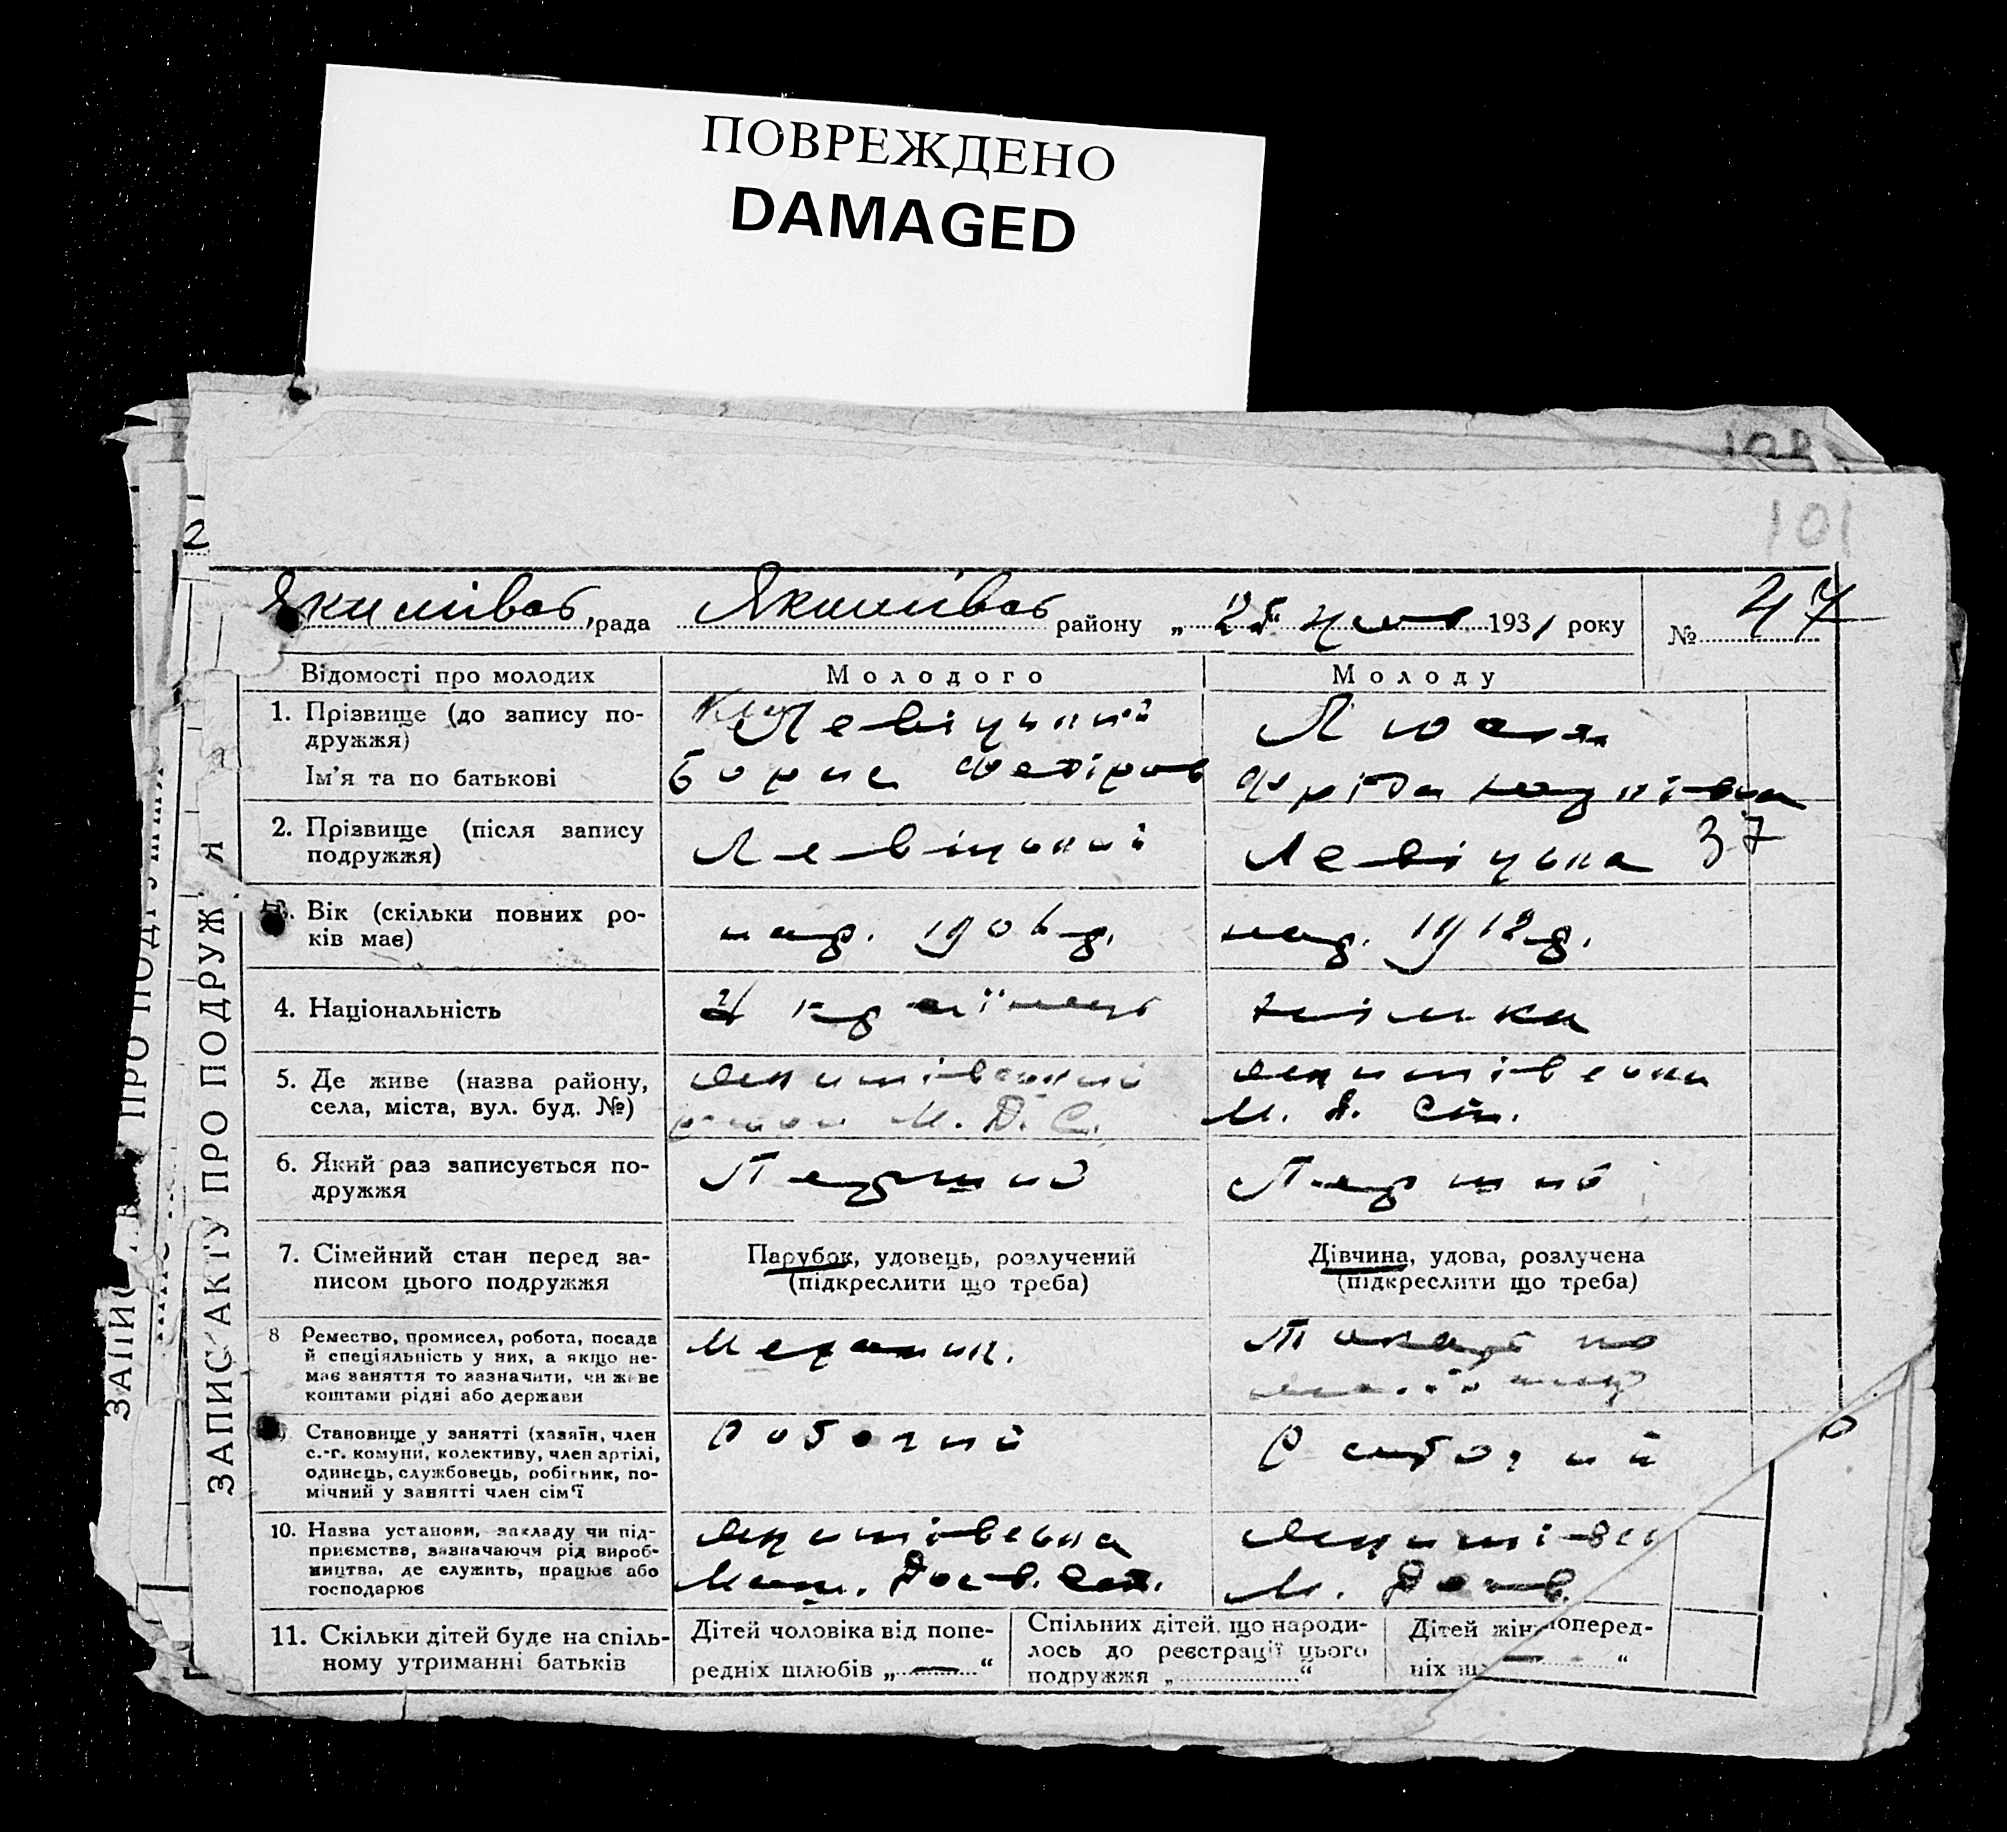 ПОВРЕЖДЕНО
DAMAGED
101
Якимівсь, рада Якимівсь району „ 25 “ 1931 року № 47
ЗАПИС АКТУ ПРО ПОДРУЖ Я
Відомості про молодих Молодого Молоду
1. Прізвище (до запису по-
дружжя) Левіцький
Ім'я та по батькові Борис Федіров Фріда
2. Прізвище (після запису
подружжя) Левіцький Левіцька 37
3. Вік (скільки повних ро-
ків має) нар. 1906 р. нар. 1912 р.
4. Національність Українець німка
5. Де живе (назва району,
села, міста, вул. буд. №) Якимівський Якимівська
район М. Д. С. М. Д. Ст.
6. Який раз записується по-
дружжя Перший Перший
7. Сімейний стан перед за-
писом цього подружжя
Парубок, удовець, розлучений
(підкреслити що треба)
Дівчина, удова, розлучена
(підкреслити що треба)
8 Ремество, промисел, робота, посада
й спеціяльність у них, а якщо не-
має заняття то зазначити, чи живе
коштами рідні або держави
Механик. Токарь по
Становище у занятті (хазяїн, член
с.-г. комуни, колективу, член артілі,
одинець, службовець, робітник, по-
мічний у занятті член сім'ї
Робочий Робочий
10. Назва установи, закладу чи під-
приємства, зазначаючи рід вироб-
ництва, де служить, працює або
господарює
Якимівська Якимівсь
Маш. Досв. Ст. М. Досв.
11. Скільки дітей буде на спіль-
ному утриманні батьків
Дітей чоловіка від попе-
редніх шлюбів „ — “
Спільних дітей, що народи-
лось до реєстрації цього
подружжя „ “
Дітей жін поперед-
ніх ш — “